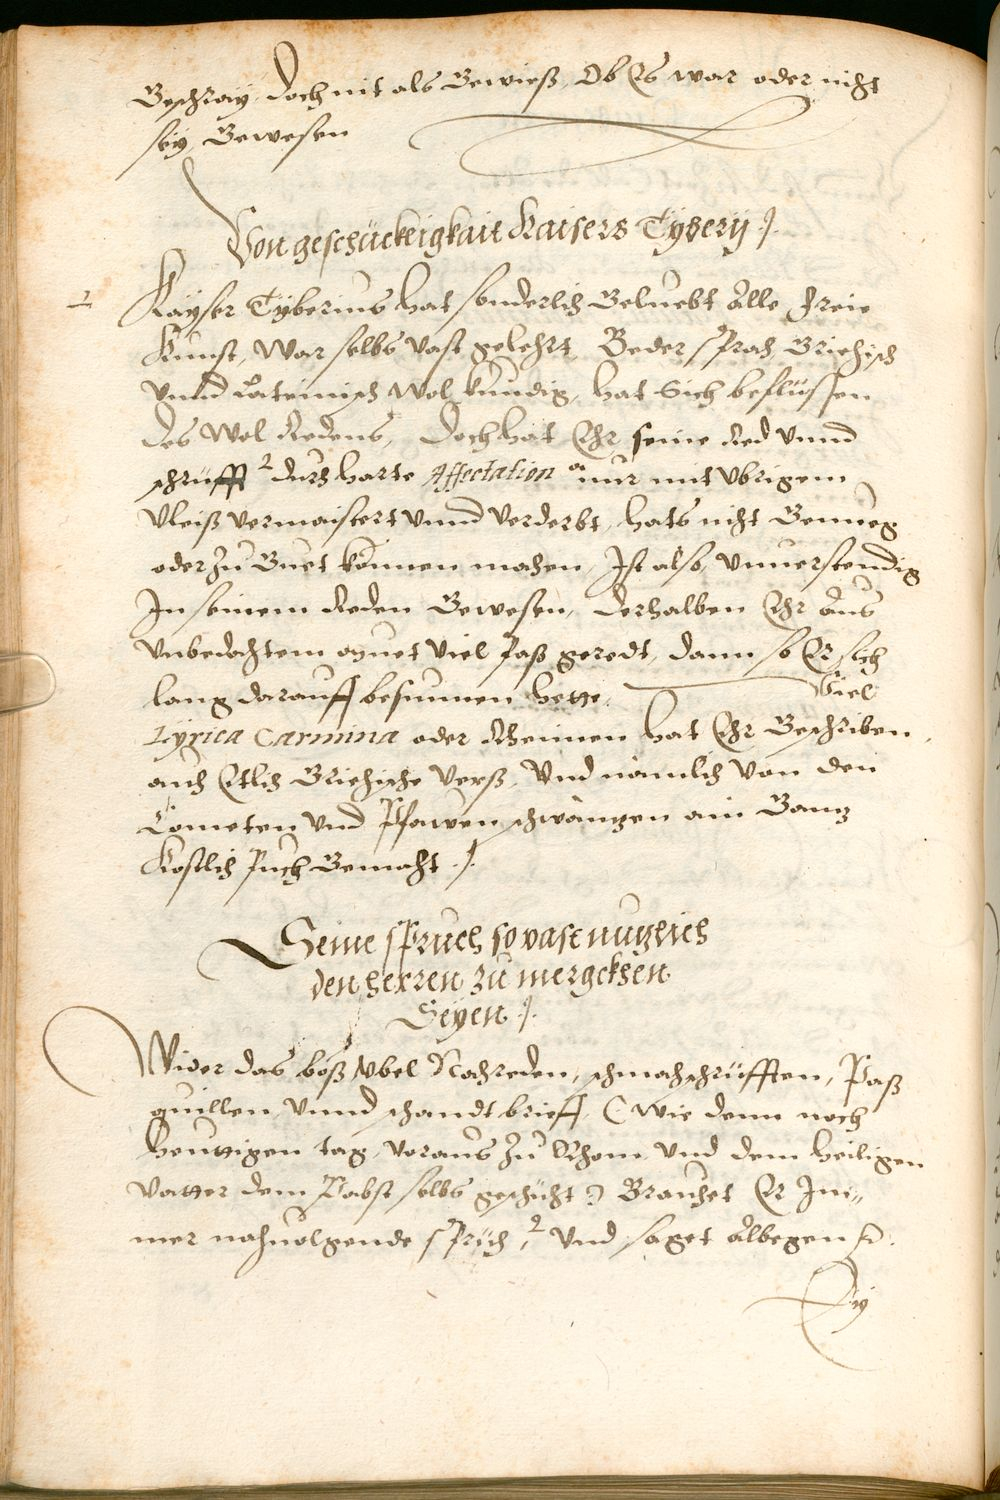 Geschray, doch nit als Gewieß, Ob Es war oder nicht
sey Gewesen
Von geschücktigkait Kaisers Tyberij ./.
1 Kayser Tyberius hat sonderlich Geluebt Alle Freie
Kunst, War selbs vast gelehrt, Beder sprach Griechisch
vnnd Lateinisch wol kundig, hat Sich beflüssen
des Wol Redens, Doch hat Ehr seine Red vnnd
schrüfft durch harte Affectation nur mit vbrigem
Vleiß vermaistert vnnd verderbt, hats nicht Genueg
oder zu Guet können machen, Ist also vnuerstendig
In seinem Reden Gewesen, derhalben Ehr Aus
vnbedachtem muet viel paß geredt, dann so Er sich
lang darauff besunnen hette. Viel
Lyrica Carmina oder Rheimen hat Ehr Beschriben,
auch Etlich Griechische verß, Vnd nämlich von den
Cometen vnd Pfawen schwäntzen ain Gantz
Kostlich Puch Gemacht ./.
Seine spruch so vast nutzlich
den herren zu merckhen
Seyen ./.
Wider das böß vbel Nachreden, schmachschrüfften, Paß
quillen vnnd schandt brieff, (wie denn noch
heuttigen tag, voraus zu Rhom vnd dem heiligen
vatter dem Pabst selbs geschicht) Brauchet Er Im=
mer nachuolgende sprüch, vnd saget Albegen
Ey